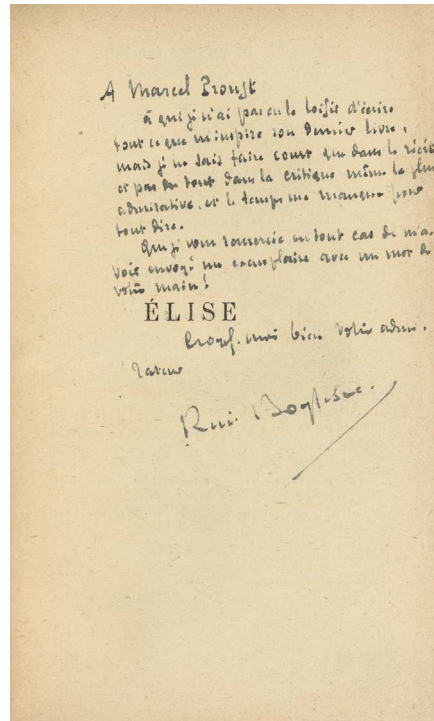 A Marcel Proust
à qui je n'ai pas eu le loisir d'écrire
tout ce que m'inspire son dernier livre,
mais je ne sais faire court que dans le récit
et pas du tout dans la critique même la plus
admirative, et le temps me manque pour
tout dire.
Que je vous remercie en tout cas de m'a-
voir envoyé un exemplaire avec un mot de
votre main!
ÉLISE
Croyez-moi bien votre admi-
rateur
René Boylesve.